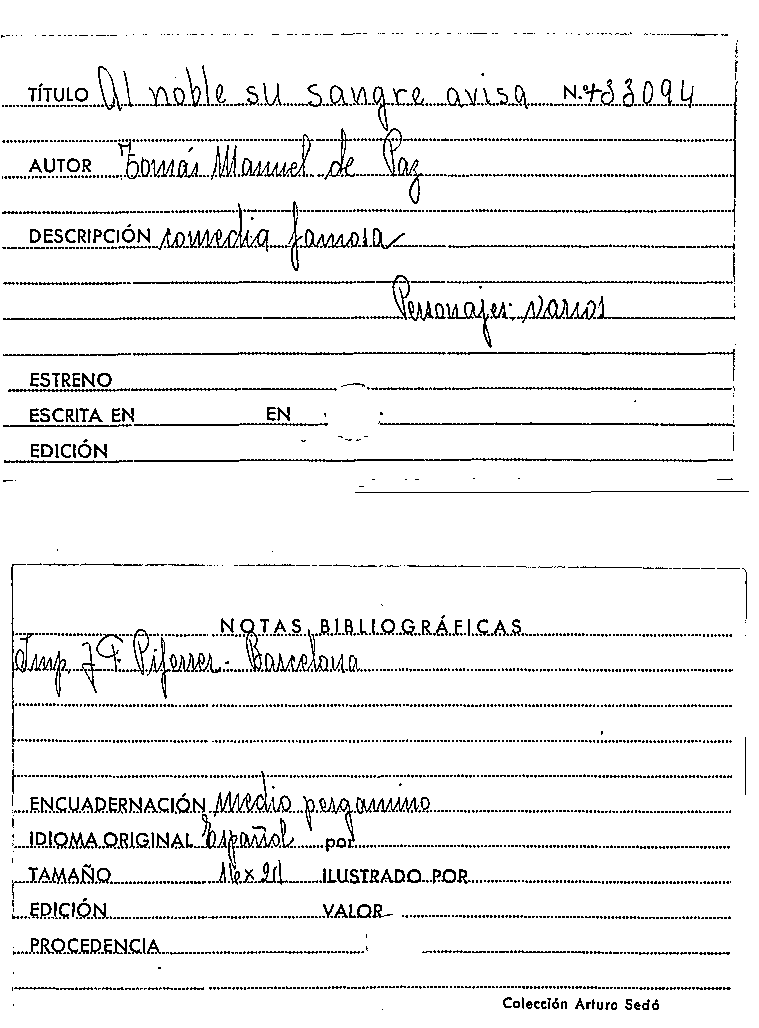 TÍTULO Al noble su sangre avisa N.º 33094
AUTOR Tomás Manuel de Paz
DESCRIPCIÓN comedia famosa
Personajes: varios
ESTRENO
ESCRITA EN EN
EDICIÓN
NOTAS BIBLIOGRÁFICAS
Imp. J F. Piferrer - Barcelona
ENCUADERNACIÓN Medio pergamino
IDIOMA ORIGINAL Español por
TAMAÑO 16 x 21 ILUSTRADO POR
EDICIÓN VALOR
PROCEDENCIA
Colección Arturo Sedó